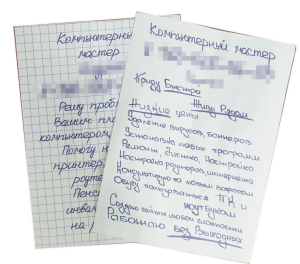 Компьютерный
мастер
и
Решу проб
Вашим
компьютером,
Помогу н
принтер,
роуте
Пенс
инва
на
Компьютерный мастер
Приду Быстро
Живу Рядом
Низкие цены
Удаление вирусов, баннеров
Установка новых программ
Ремонт, Чистка, Настройка
Настройка роутера, интернета
Консультирую по любым вопросам
Обучу пользоваться ПК и
ноутбуком
Создаю сайты любой сложности
Работаю Без Выходных